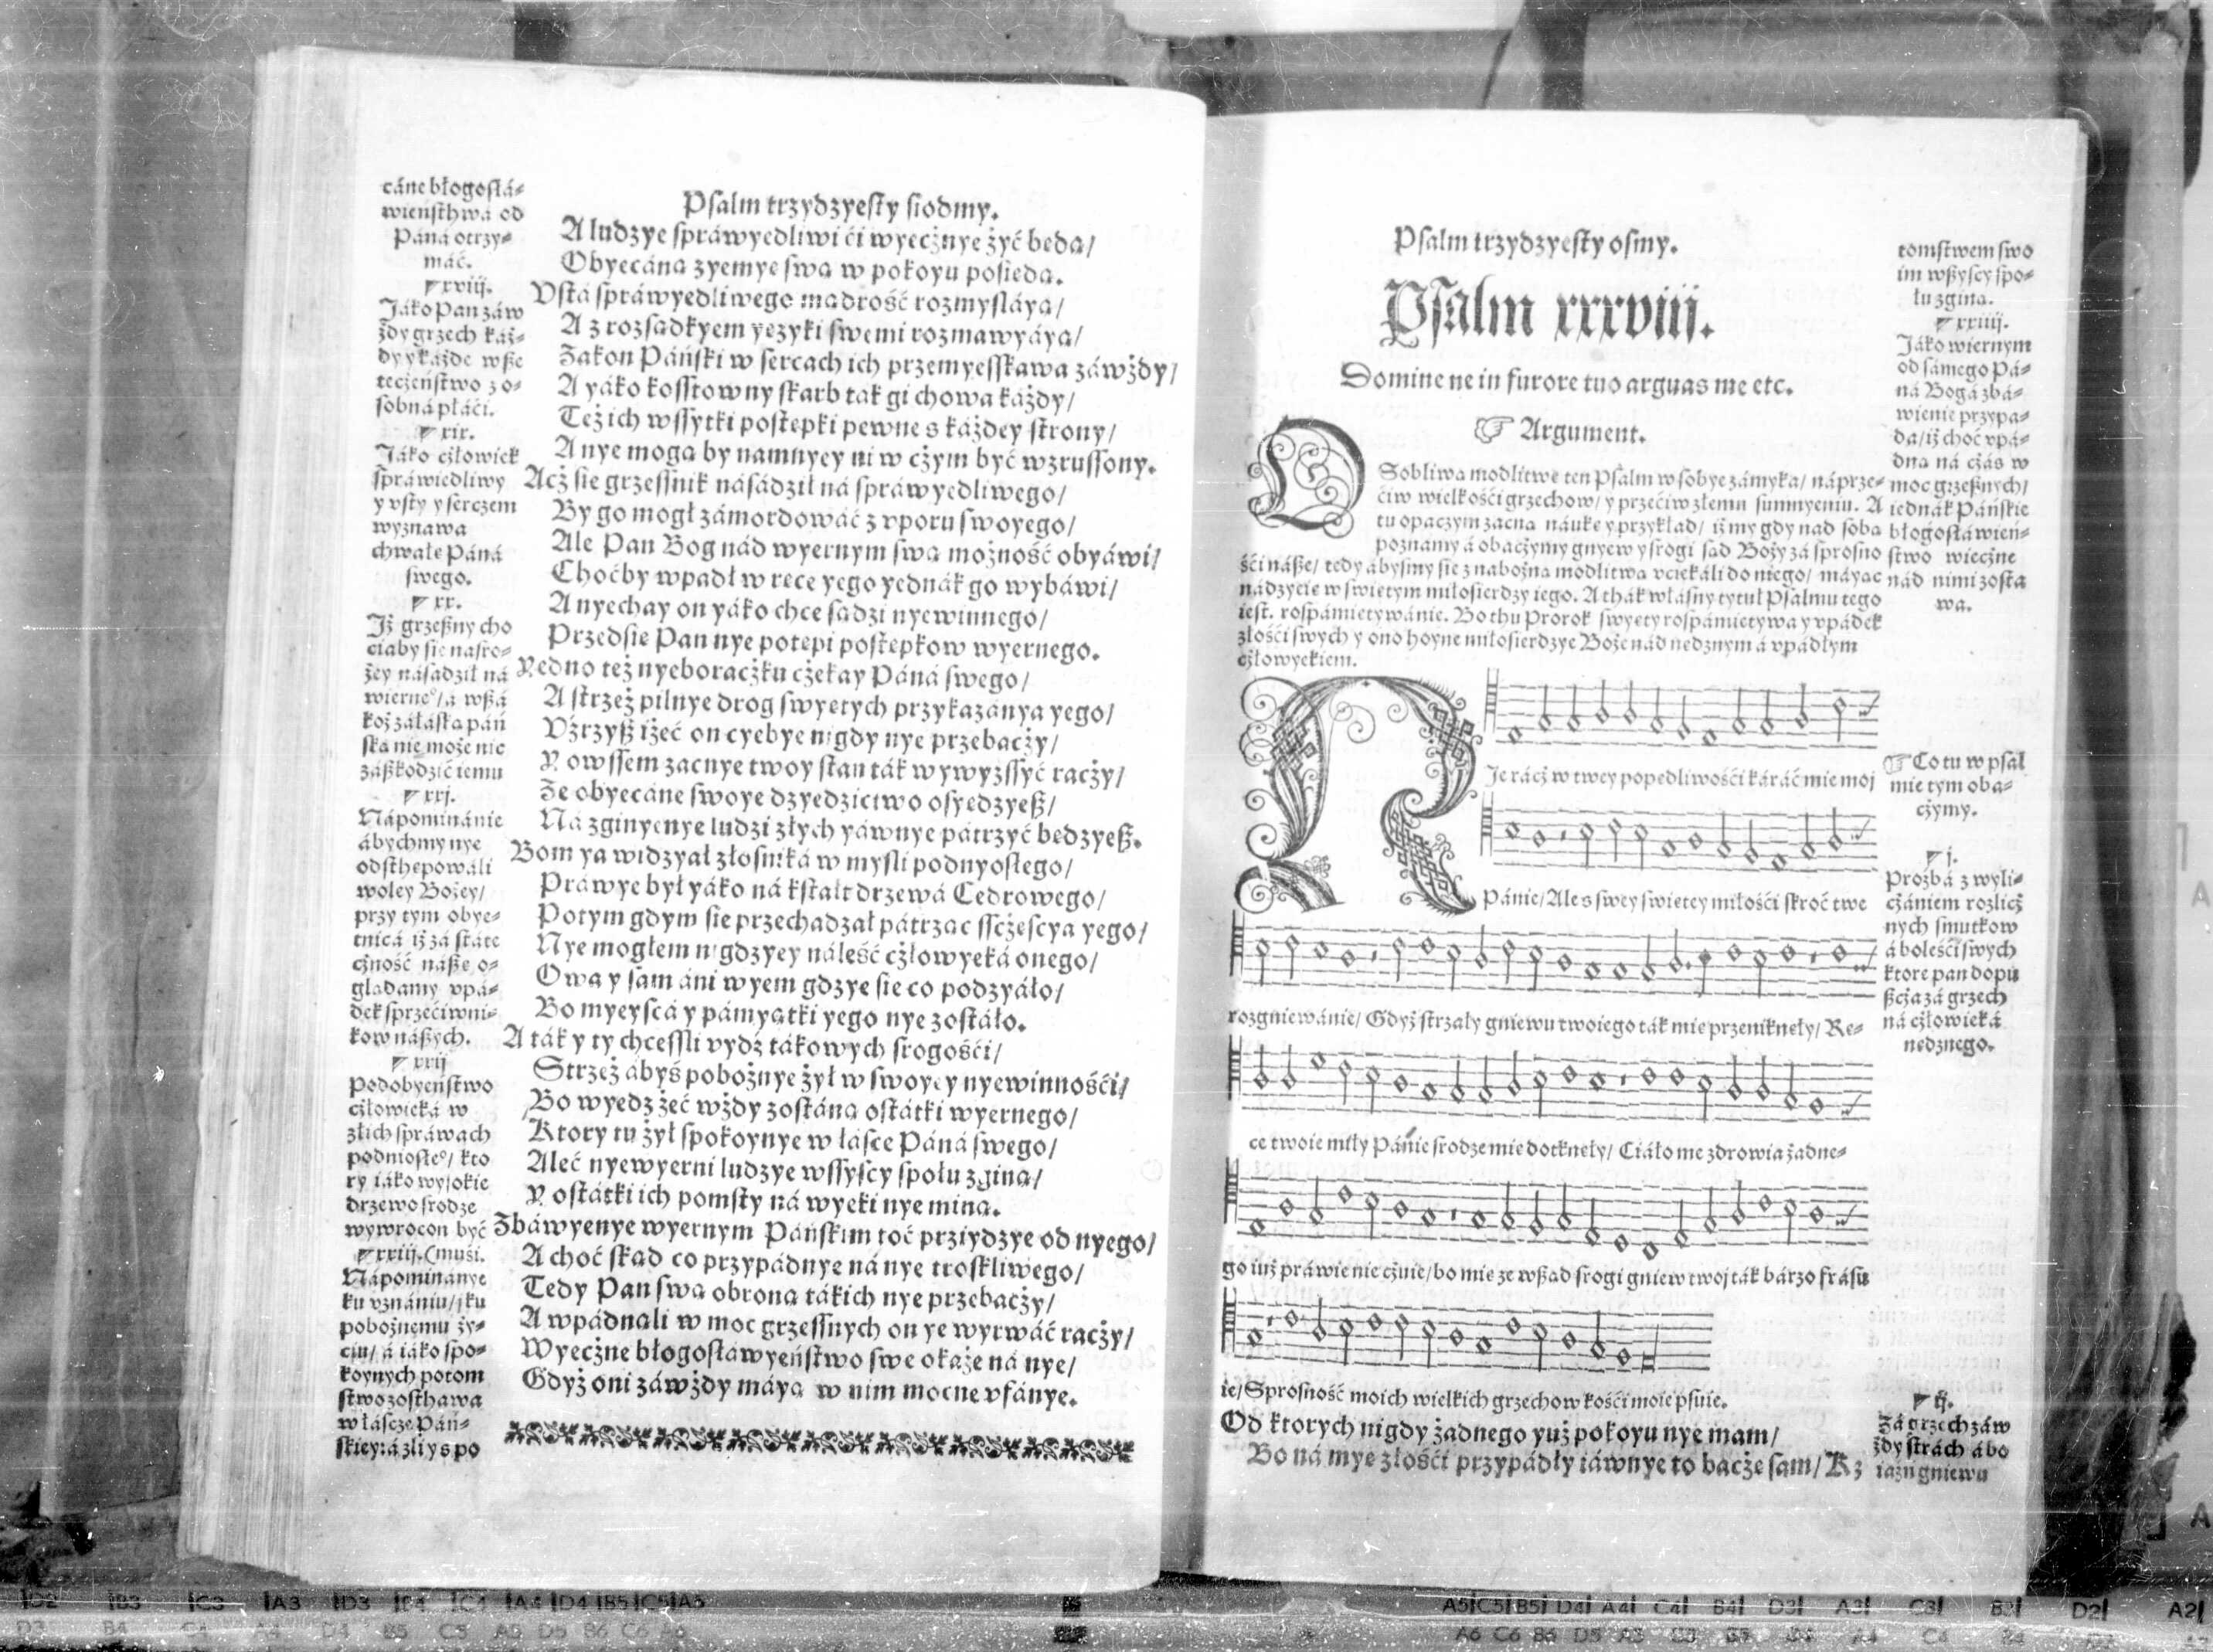 cáne błogosłá⸗
wieństhwá od
Páná otrzy⸗
máć.
xviij.
Jáko Pan záw
żdy grzech káż⸗
dy y káżde wße
teczeństwo z o⸗
sobná płáći.
xix.
Jáko człowiek
spráwiedliwy
y vsty y serczem
wyznawa
chwałe Páná
swego.
xx.
Jż grzeßny cho
ciaby sie nasro⸗
żey násádził ná
wierne°/ á wßá
koż záłáską páń
ska nie może nic
záßkodzić iemu
xxj.
Nápominánie
ábychmy nye
odsthepowáli
woley Bożey/
przy tym obye⸗
tnicá iż zá státe
czność náße o⸗
glądamy vpá⸗
dek sprzećiwni⸗
kow náßych.
xxij
Podobyeństwo
człowieká w
złich spráwach
podniosłe°/ kto
ry iáko wysokie
drzewo srodze
wywrocon być
xxiij. (muśi.
Nápominánye
ku vznániu/ y ku
pobożnemu ży⸗
ciu/ á iáko spo⸗
koynych potom
stwo zosthawa
w łásce Páń⸗
skiey: á zli y s po
Psalm trzydzyesty siodmy.
A ludzye spráwyedliwi ći wyecżnye żyć będą/
Obyecáną zyemye swą w pokoyu posiędą.
Vstá spráwyedliwego mądrość rozmysláyą/
A z rozsądkyem yęzyki swemi rozmawyáyą/
Zakon Páński w sercach ich przemyesskawa záwżdy/
A yáko kosstowny skarb ták gi chowa káżdy/
Też ich wssytki postępki pewne s káżdey strony/
A nye mogą by namnyey ni w czym być wzrussony.
Acż sie grzessnik násádził ná spráwyedliwego/
By go mogł zámordowáć z vporu swoyego/
Ale Pan Bog nád wyernym swą możność obyáwi/
Choćby wpadł w ręce yego yednák go wybáwi/
A nyechay on yáko chce sądzi nyewinnego/
Przedsie Pan nye potępi postępkow wyernego.
Yedno też nyeboracżku cżekay Páná swego/
A strzeż pilnye drog swyętych przykazánya yego/
Vźrzyß iżeć on cyebye nigdy nye przebacży/
Y owssem zacnye twoy stan ták wywyzssyć racży/
Ze obyecáne swoye dzyedzictwo osyędzyeß/
Ná zginyenye ludzi złych yáwnye pátrzyć będzyeß.
Bom ya widzyał złosniká w mysli podnyosłego/
Práwye był yáko ná kstałt drzewá Cedrowego/
Potym gdym sie przechadzał pátrząc sscżęscya yego/
Nye mogłem nigdzyey náleść cżłowyeká onego/
Owa y sam áni wyem gdzye sie co podzyáło/
Bo myeyscá y pámyątki yego nye zostáło.
A ták y ty chcessli vydż tákowych srogośći/
Strzeż ábyś pobożnye żył w swoyey nyewinnośći/
Bo wyedz żeć wżdy zostáną ostátki wyernego/
Ktory tu żył spokoynye w łásce Páná swego/
Aleć nyewyerni ludzye wssyscy społu zginą/
Y ostátki ich pomsty ná wyeki nye miną.
Zbáwyenye wyernym Páńskim toć prziydzye od nyego/
A choć skąd co przypádnye ná nye troskliwego/
Tedy Pan swą obroną tákich nye przebacży/
A wpádnąli w moc grzessnych on ye wyrwáć racży/
Wyecżne błogosłáwyeństwo swe okaże ná nye/
Gdyż oni záwżdy máyą w nim mocne vfánye.
Psalm trzydzyesty osmy.
Psalm xxxviij.
Domine ne in furore tuo arguas me etc.
Argument.
OSobliwą modlitwę ten Psalm w sobye zámyka/ náprze⸗
ćiw wielkośći grzechow/ y przećiw złemu sumnyeniu. A
tu opaczym zacną náukę y przykład/ iż my gdy nád sobą
poznamy á obaczymy gnyew y srogi sąd Boży zá sprosno
śći náße/ tedy ábysmy sie z nabożną modlitwą vciekáli do niego/ máyąc
nádzyeię w świętym miłosierdzy iego. A thák własny tytuł Psalmu tego
iest. rospámiętywánie. Bo thu Prorok swyęty rospámiętywa y vpádek
złośći swych y ono hoyne miłosierdzye Boże nád nędznym á vpádłym
człowyekiem.
NJe rácż w twey popędliwośći káráć mie moj
Pánie/ Ale s swey świętey miłośći skroć twe
rozgniewánie/ Gdyż strzáły gniewu twoiego ták mie przeniknęły/ Rę⸗
ce twoie miły Pánie srodze mie dotknęły/ Ciáło me zdrowia żadne⸗
go iuż práwie nie czuie/ bo mie ze wßąd srogi gniew twoj ták bárzo frásu
ie/ Sprosność moich wielkich grzechow kośći moie psuie.
Od ktorych nigdy żadnego yuż pokoyu nye mam/
Bo ná mye złośći przypádły iáwnye to bacżę sam/ A z
tomstwem swo
im wßyscy spo⸗
łu zginą.
xxiiij.
Jáko wiernym
od sámego Pá⸗
ná Bogá zbá⸗
wienie przypa⸗
da/ iż choć vpá⸗
dną ná czás w
moc grzeßnych/
iednák Páńskie
błogosłáwień⸗
stwo wieczne
nád nimi zosta
wa.
Co tu w psal
mie tym oba⸗
czymy.
j.
Prozbá z wyli⸗
czániem rozlicz
nych smutkow
á boleśći swych
ktore pan dopu
ßcza zá grzech
ná człowieká
nędznego.
ij.
Zá grzech záw
żdy strách ábo
iáźń gniewu